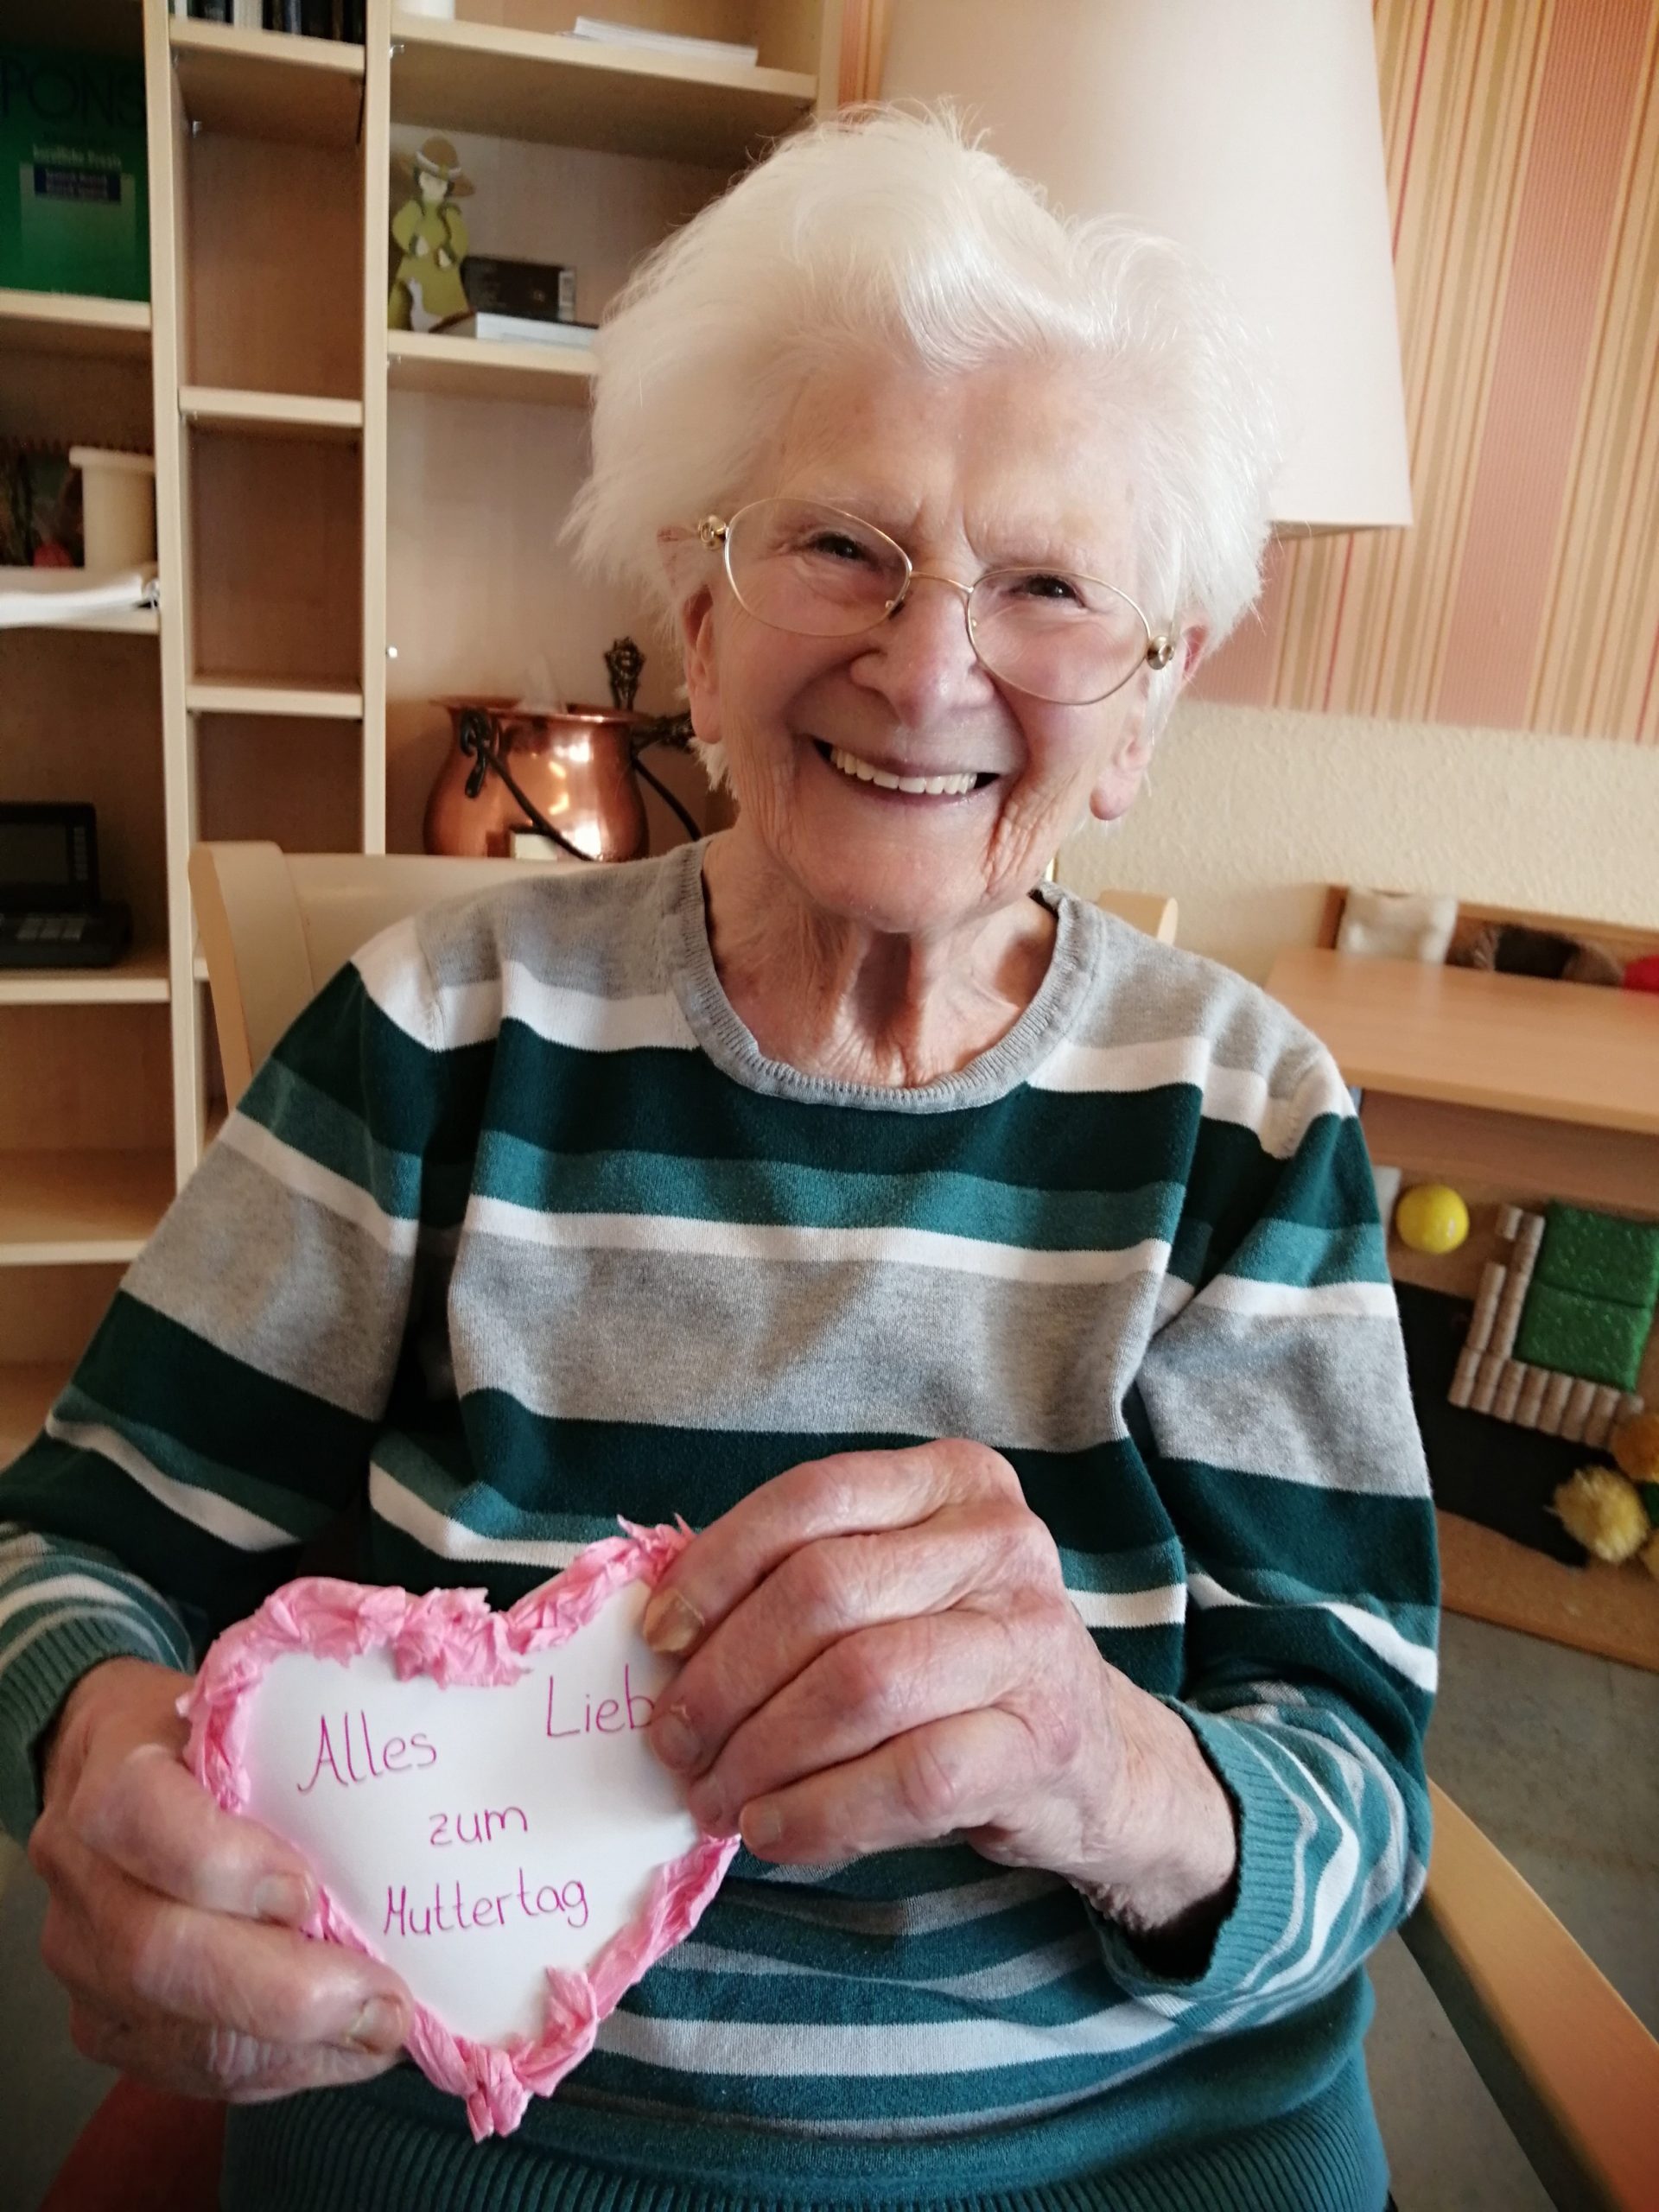 PONS
Alles Lieb
zum
Muttertag